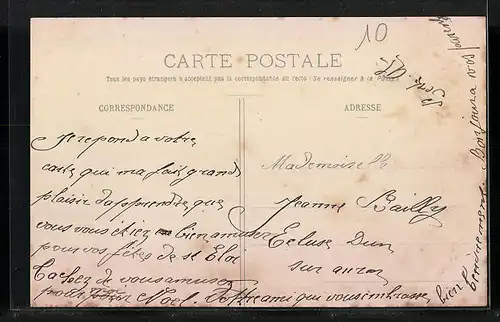 10
CARTE POSTALE
Tous les pays étrangers n'acceptent pas la correspondance au recto (Se renseigner à la Poste)
CORRESPONDANCE
ADRESSE
Je repond a votre
carte qui ma fais grand
plaisir d'apprendre que
vous vous etiez bien amuser
pour vos fêtes de st Eloi
Tachez de vous amuser
pour Noel. Votre ami qui vous embrasse
bien
Bonjour a vos parents
Mademoiselle
Jeanne Bailly
Ecluse Dun
sur auron